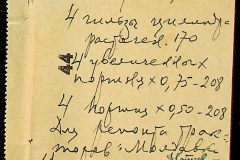 4 гильзы цилиндр.
расточен. 170
44
4 увеличенных
поршня х 0,75-208
4 поршня х 0,50-208
Для ремонта трак-
торов "Молдав